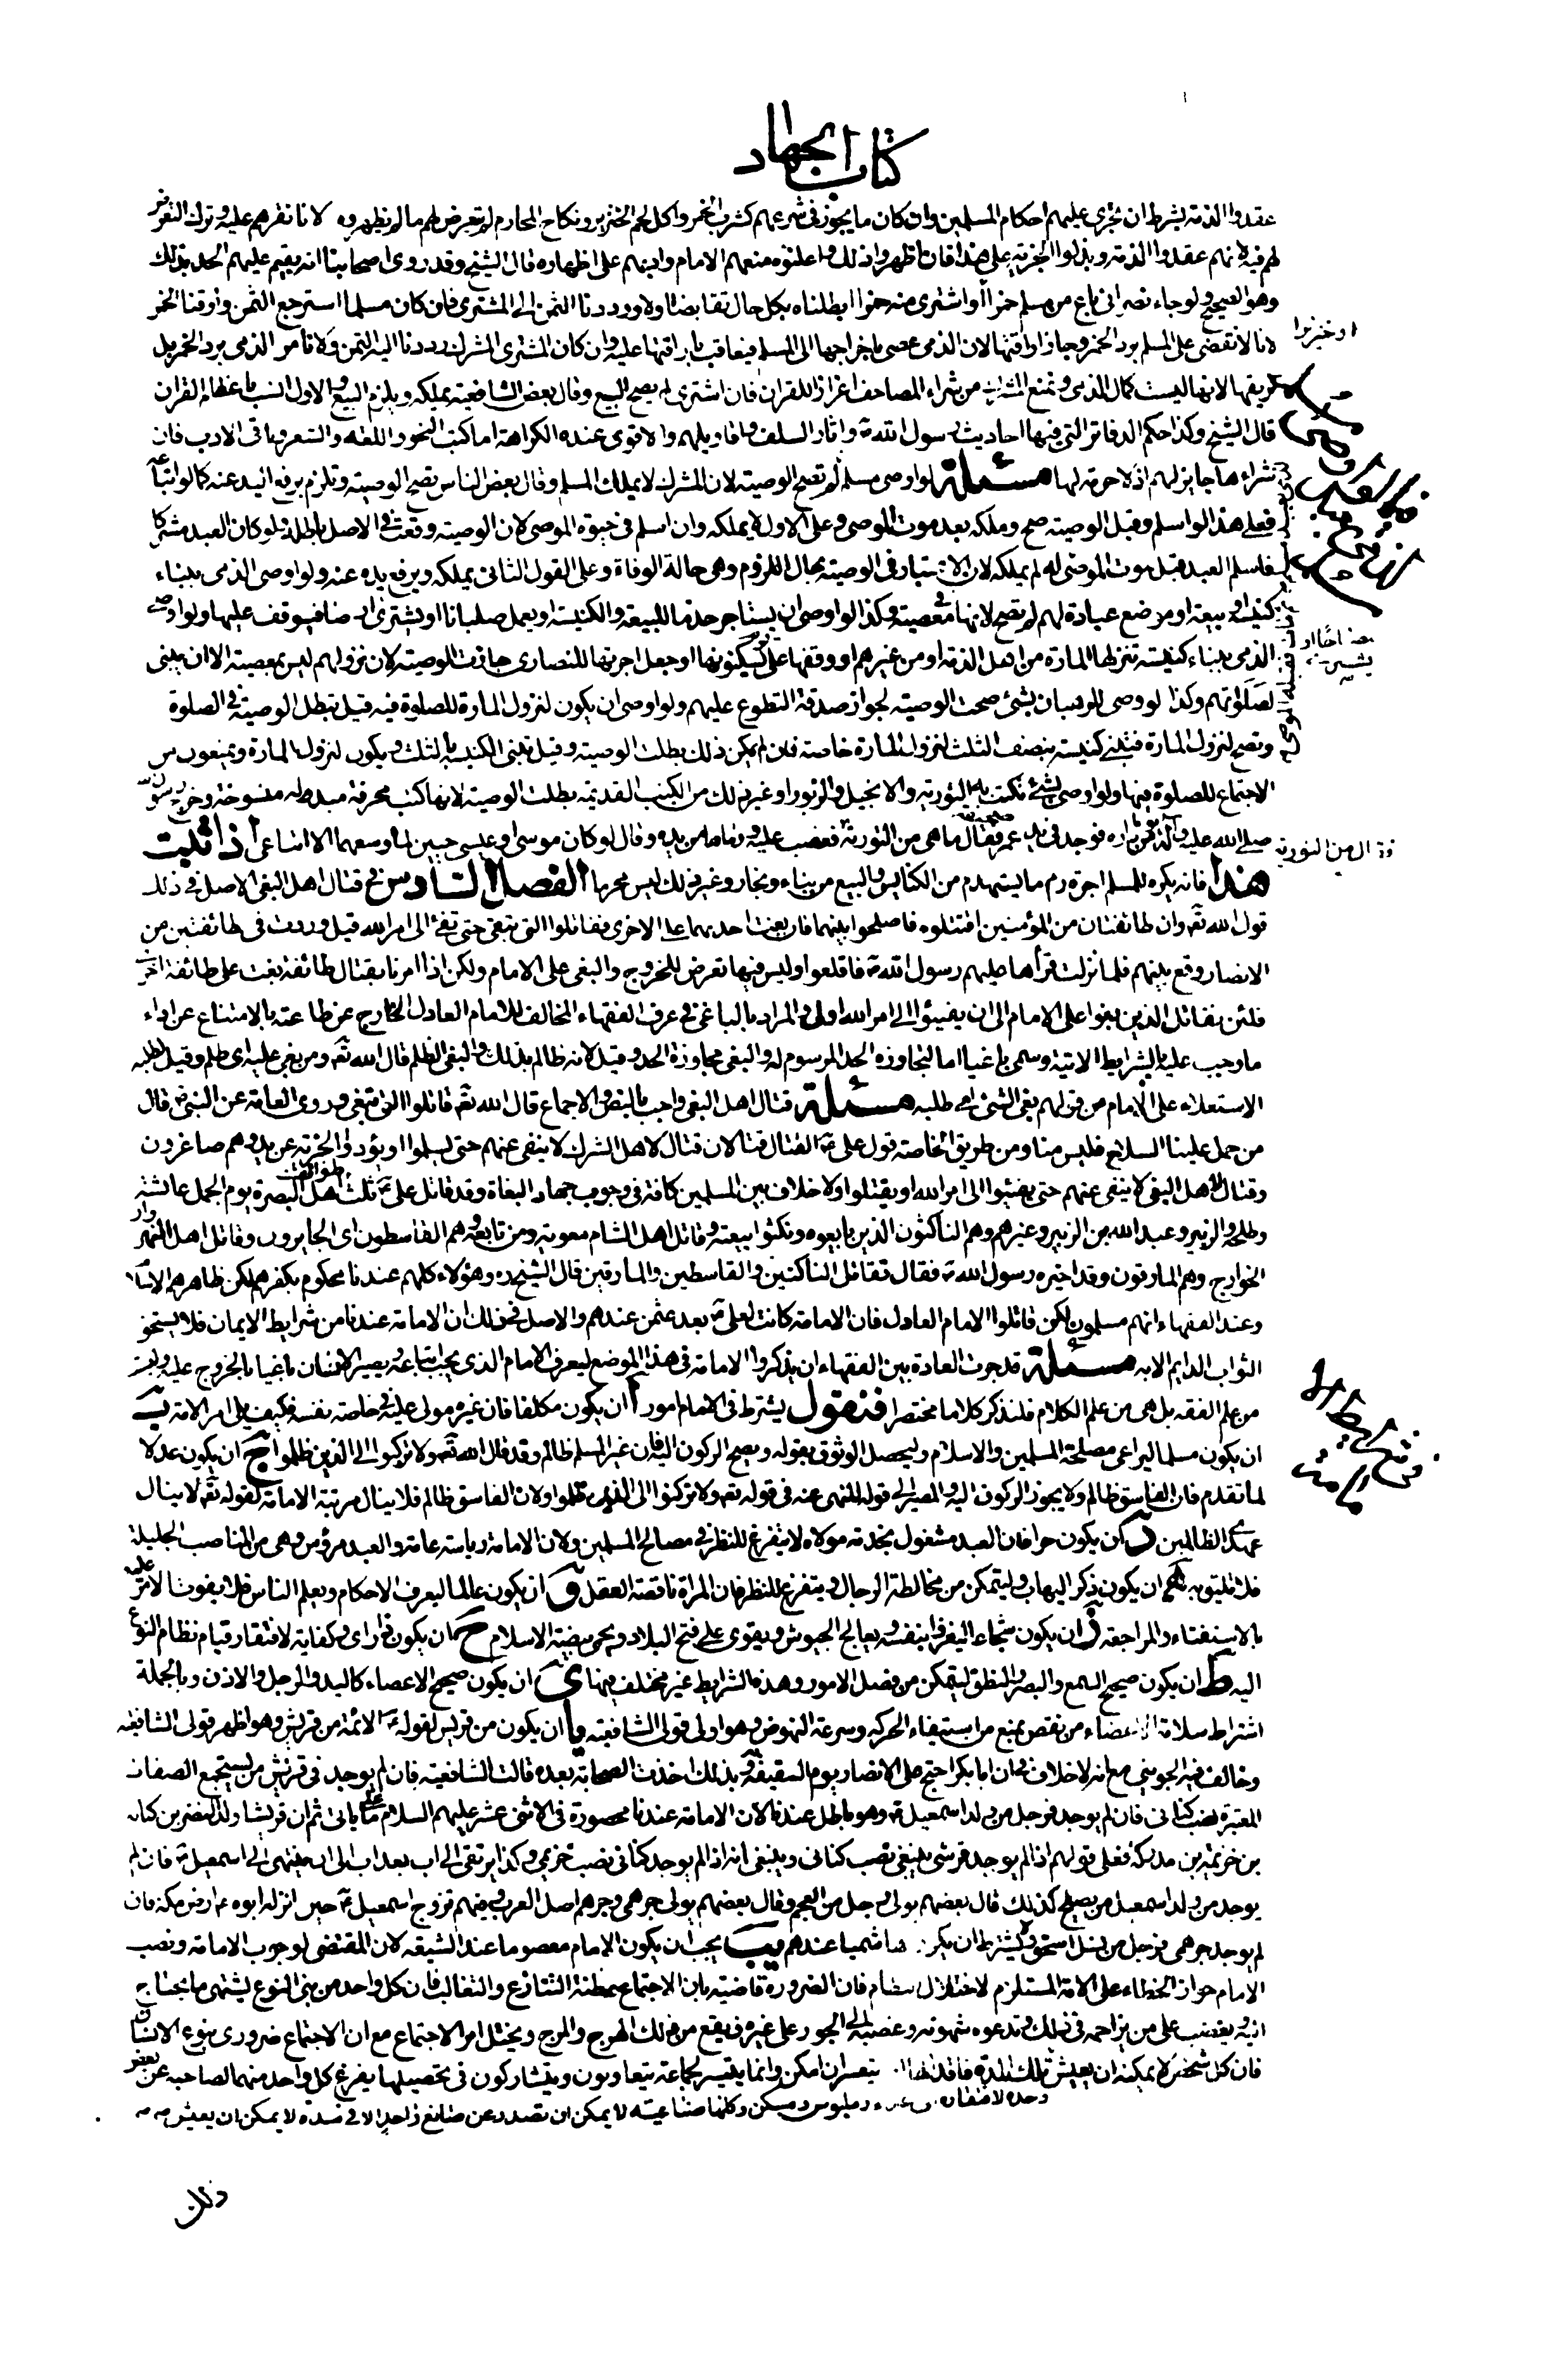 كتاب الجهاد
عقدوا الذمة بشرط ان تجرى عليهم احكام المسلمين وان كان ما يجوز فى شرعهم كشرب الخمر واكل لحم الخنزير ونكاح المحارم لم يتعرض لهم ما لم يظهروه لانا نقرهم عليه وترك التعرض
لهم فيه لانهم عقدوا الذمة وبذلوا الجزية على هذا فان اظهروا ذلك واعلنوه منعهم الامام وادبهم على اظهاره قال الشيخ وقد روى اصحابنا انه يقيم عليهم الحد بذلك
وهو الصحيح ولو جاء نصرانى باع من مسلم خمرا او اشترى منه خمرا ابطلناه بكل حال تقابضا اولا ورددنا الثمن الى المشترى فان كان مسلما استرجع الثمن وارقنا الخمر
او خنزيرا
لانا لا نقضى على المسلم برد الخمر وجاز اراقتها لان الذمى عصى باخراجها الى المسلم فيعاقب باراقتها عليه وان كان المشترى المشرك رددنا اليه الثمن ولا نامر الذمى برد الخمر بل
نريقها لانها ليست كمال الذمى ويمنع المشرك من شراء المصاحف اعزازا للقران فان اشترى لم يصح البيع وقال بعض الشافعية يملكه ويلزم البيع والاول انسب باعظام القران
قال الشيخ وكذا حكم الدفاتر التى فيها احاديث رسول الله ص واثار السلف واقاويلهم والاقوى عنده الكراهة اما كتب النحو واللغه والشعر وباقى الادب فان
شراءها جايز لهم اذ لا حرمة لها مسئلة لو اوصى مسلم لم تصح الوصية لان المشرك لا يملك المسلم وقال بعض الناس تصح الوصية ويلزم برفع اليد عنه كالو ابتاعه
فعلى هذا لو اسلم وقبل الوصية صح وملكه بعد موت الموصى وعلى الاول لا يملكه وان اسلم فى حيوة الموصى لان الوصية وقعت فى الاصل باطلة ولو كان العبد مشركا
فاسلم العبد قبل موت الموصى له لم يملكه لان الاعتبار فى الوصية بحال اللزوم وهى حالة الوفاة وعلى القول الثانى يملكه ويرفع يده عنه ولو اوصى الذمى ببناء
كنيسة او بيعة او موضع عبادة لهم لم تصح لانها فى معصية وكذا لو اوصى ان يستاجر خدما للبيعة والكنيسة او يعمل صلبانا او يشترى ارضا فيوقف عليها ولو اوصى
الذمى ببناء كنيسة تنزلها المارة من اهل الذمة او من غيرهم او وقفها على قوم يسكنونها او جعل اجرتها للنصارى جازت الوصية لان نزولهم ليس بمعصية الا ان يبنى
لصلوتهم وكذا لو وصى للرهبان بشئ صحت الوصية لجواز صدقة التطوع عليهم ولو اوصى ان يكون لنزول المارة للصلوة فيه قيل تبطل الوصية فى الصلوة
وتصح لنزول المارة فتبنى كنيسة بنصف الثلث لنزول المارة خاصة فان لم يمكن ذلك بطلت الوصية وقيل تبنى الكنيسة بالثلث ويكون لنزول المارة ويمنعون من
الاجتماع للصلوة فيها ولو اوصى بشئ تكتب به التورية والانجيل والزبور او غير ذلك من الكتب القديمة بطلت الوصية لانها كتب محرفة مبدلة منسوخة وخرج رسول
صلى الله عليه وآله يوما من داره فوجد فى يد عمر صحيفة فقال ما هى من التورية فغضب عليه ورماها من يده وقال لو كان موسى او عيسى حيين لما وسعهما الا اتباعى اذا ثبت
هذا فانه يكره للمسلم اجرة رم ما يستهدم من الكنايس والبيع من بناء ونجار وغير ذلك وليس محرما الفصل السادس فى قتال اهل البغى الاصل فى ذلك
قول الله تع وان طائفتان من المؤمنين اقتتلوا فاصلحوا بينهما فان بغت احديهما على الاخرى فقاتلوا التى تبغى حتى تفئ الى امر الله قيل وردت فى طائفتين من
الانصار وقع بينهم فلما نزلت قرأها عليهم رسول الله ص فاقلعوا وليس فيها تعرض للخروج والبغى على الامام ولكن اذا امرنا بقتال طائفة بغت على طائفة اخرى
فلئن نقاتل الذين بغوا على الامام الى ان يفيئوا الى امر الله اولى والمراد بالباغى فى عرف الفقهاء المخالف للامام العادل الخارج عن طاعته بالامتناع عن اداء
ما وجب عليه بالشرايط الاتية وسمى باغيا اما لتجاوزه الحد المرسوم له والبغى مجاوزة الحد وقيل لانه ظالم بذلك والبغى الظلم قال الله تع ومن بغى عليه اى ظلم وقيل لطلبه
الاستعلاء على الامام من قولهم بغى الشئ اى طلبه مسئلة قتال اهل البغى واجب بالنص والاجماع قال الله تع فقاتلوا التى تبغى وروى العامة عن النبى ص قال
من حمل علينا السلاح فليس منا ومن طريق الخاصة قول على ع القتال قتالان قتال لاهل الشرك لا ينفر عنهم حتى يسلموا او يؤدوا الجزية عن يد وهم صاغرون
وقتال لاهل البغى لا ينفر عنهم حتى يفيئوا الى امر الله او يقتلوا ولا خلاف بين المسلمين كافة فى وجوب جهاد البغاة وقد قاتل على ع ثلث طوائف اهل البصرة يوم الجمل عائشة
وطلحة والزبير وعبد الله بن الزبير وغيرهم وهم الناكثون الذين بايعوه ونكثوا بيعته وقاتل اهل الشام معوية ومن تابعه وهم القاسطون اى الجايرون وقاتل اهل النهروان
الخوارج وهم المارقون وقد اخبره رسول الله ص فقال تقاتل الناكثين والقاسطين والمارقين قال الشيخ ره وهؤلاء كلهم عندنا محكوم بكفرهم لكن ظاهرهم الاسلام
وعند الفقهاء انهم مسلمون لكن قاتلوا الامام العادل فان الامامة كانت لعلى ع بعد عثمن عندهم والاصل فى ذلك ان الامامة عندنا من شرايط الايمان فلا يستحق
الثواب الدايم الا به مسئلة قد جرت العادة بين الفقهاء ان يذكروا الامامة فى هذا الموضع ليعرف الامام الذى يجب اتباعه ويصير الانسان باغيا بالخروج عليه وليست
من علم الفقه بل هى من علم الكلام فلنذكر كلاما مختصرا فنقول يشترط فى الامام امور ا ان يكون مكلفا فان غيره مولى عليه فى خاصة نفسه فكيف يلى امر الامة ب
ان يكون مسلما ليراعى مصلحة المسلمين والاسلام وليحصل الوثوق بقوله ويصح الركون اليه فان غير المسلم ظالم وقد قال الله تع ولا تركنوا الى الذين ظلموا ج ان يكون عدلا
لما تقدم فان الفاسق ظالم ولا يجوز الركون اليه والمصير الى قوله للنهى عنه فى قوله تع ولا تركنوا الى الذين ظلموا ولان الفاسق ظالم فلا ينال مرتبة الامامة لقوله تع لا ينال
عهدى الظالمين د ان يكون حرا فان العبد مشغول بخدمة مولاه لا يتفرغ للنظر فى مصالح المسلمين ولان الامامة رياسة عامة والعبد مرؤس وهى من المناصب الجليلة
فلا تليق به ه ان يكون ذكرا ليهاب وليتمكن من مخالطة الرجال ويتفرغ للنظر فان المراة ناقصة العقل و ان يكون عالما ليعرف الاحكام ويعلم الناس فلا يفوت الامر عليه
بالاستفتاء والمراجعة ز ان يكون شجاعا ليغزو بنفسه ويعالج الجيوش ويقوى على فتح البلاد ويحمى بيضة الاسلام ح ان يكون ذا راى وكفاية لافتقار قيام نظام النوع
اليه ط ان يكون صحيح السمع والبصر والنطق ليتمكن من فصل الامور وهذه الشرايط غير مختلف فيها ى ان يكون صحيح الاعضاء كاليد والرجل والاذن وبالجملة
اشتراط سلامة الاعضاء من نقص يمنع من استيفاء الحركة وسرعة النهوض وهو اولى قولى الشافعية يا ان يكون من قريش لقوله ع الائمة من قريش وهو اظهر قولى الشافعية
وخالف فيه الجوينى مع انه لا خلاف فى ان ابا بكر احتج على الانصار يوم السقيفة به وبذلك اخذت الصحابة بعده قالت الشافعية فان لم يوجد فى قريش من يستجمع الصفات
المعتبرة نصب كنانى فان لم يوجد فرجل من ولد اسمعيل ع وهو باطل عندنا لان الامامة عندنا محصورة فى الاثنى عشر عليهم السلام على ما ياتى ثم ان قريشا ولد النضر بن كنانة
بن خزيمة بن مدركة فعلى قولهم اذا لم يوجد قرشى ينبغى نصب كنانى وينبغى انه اذا لم يوجد كنانى نصب خزيمى وكذا يرتقى الى اب بعد اب الى ان ينتهى الى اسمعيل ع فان لم
يوجد من ولد اسمعيل من يصلح لذلك قال بعضهم يولى رجل من العجم وقال بعضهم يولى جرهمى وجرهم اصل العرب وفيهم تزوج اسمعيل ع حين انزله ابوه ع ارض مكة فان
لم يوجد جرهمى فرجل من نسل اسحق ولا يشترط ان يكون هاشميا عندهم يب يجب ان يكون الامام معصوما عند الشيعة لان المقتضى لوجوب الامامة ونصب
الامام جواز الخطاء على الامة المستلزم لاختلال النظام فان الضرورة قاضية بان الاجتماع مظنة التنازع والتغالب فان كل واحد من بنى النوع يشتهى ما يحتاج
اليه ويغضب على من يزاحمه فى ذلك وتدعوه شهوته وغضبه الى الجور على غيره فيقع من ذلك الهرج والمرج ويختل امر الاجتماع مع ان الاجتماع ضرورى لنوع الانسان
فان كل شخص لا يمكنه ان يعيش وحده لافتقاره الى غذاء وملبوس ومسكن وكلها صناعية لا يمكن ان تصدر عن صانع واحد الا فى مدة لا يمكن ان يعيش
تلك المدة فاقدا لها او يتعسر ان امكن وانما يتيسر لجماعة يتعاونون ويتشاركون فى تحصيلها يفرغ كل واحد منهما لصاحبه عن بعض
ذلك